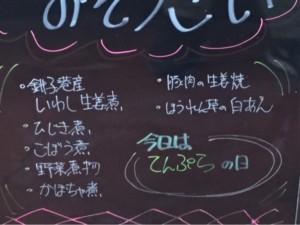 おそうざい
・銚子港産
いわし生姜煮
・ひじき煮
・ごぼう煮
・野菜煮物
・かぼちゃ煮
・豚肉の生姜焼
・ほうれん草の白あん
今日は
てんぷらの日